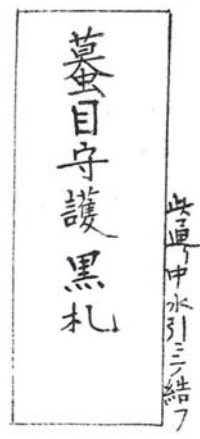 蟇目守護 黒札
此通中水引ニテ結フ